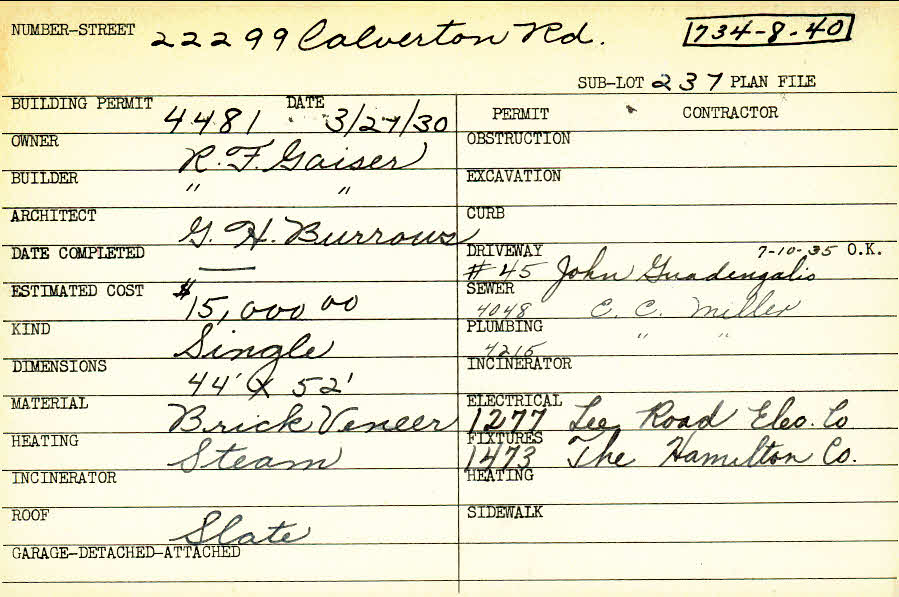 NUMBER-STREET 22299 Calverton Rd. 734-8-40
SUB-LOT 237 PLAN FILE
BUILDING PERMIT 4481 DATE 3/27/30
OWNER R. F. Gaiser
BUILDER " "
ARCHITECT G. H. Burrows
DATE COMPLETED —
ESTIMATED COST $15,000 00
KIND Single
DIMENSIONS 44' X 52'
MATERIAL Brick Veneer
HEATING Steam
INCINERATOR
ROOF Slate
GARAGE-DETACHED-ATTACHED
PERMIT CONTRACTOR
OBSTRUCTION
EXCAVATION
CURB
DRIVEWAY 7-10-35 O.K.
#45 John
SEWER
4048 C. C. Miller
PLUMBING
4215 " "
INCINERATOR
ELECTRICAL
1277 Lee Road Elec. Co
FIXTURES
1473 The Hamilton Co.
HEATING
SIDEWALK